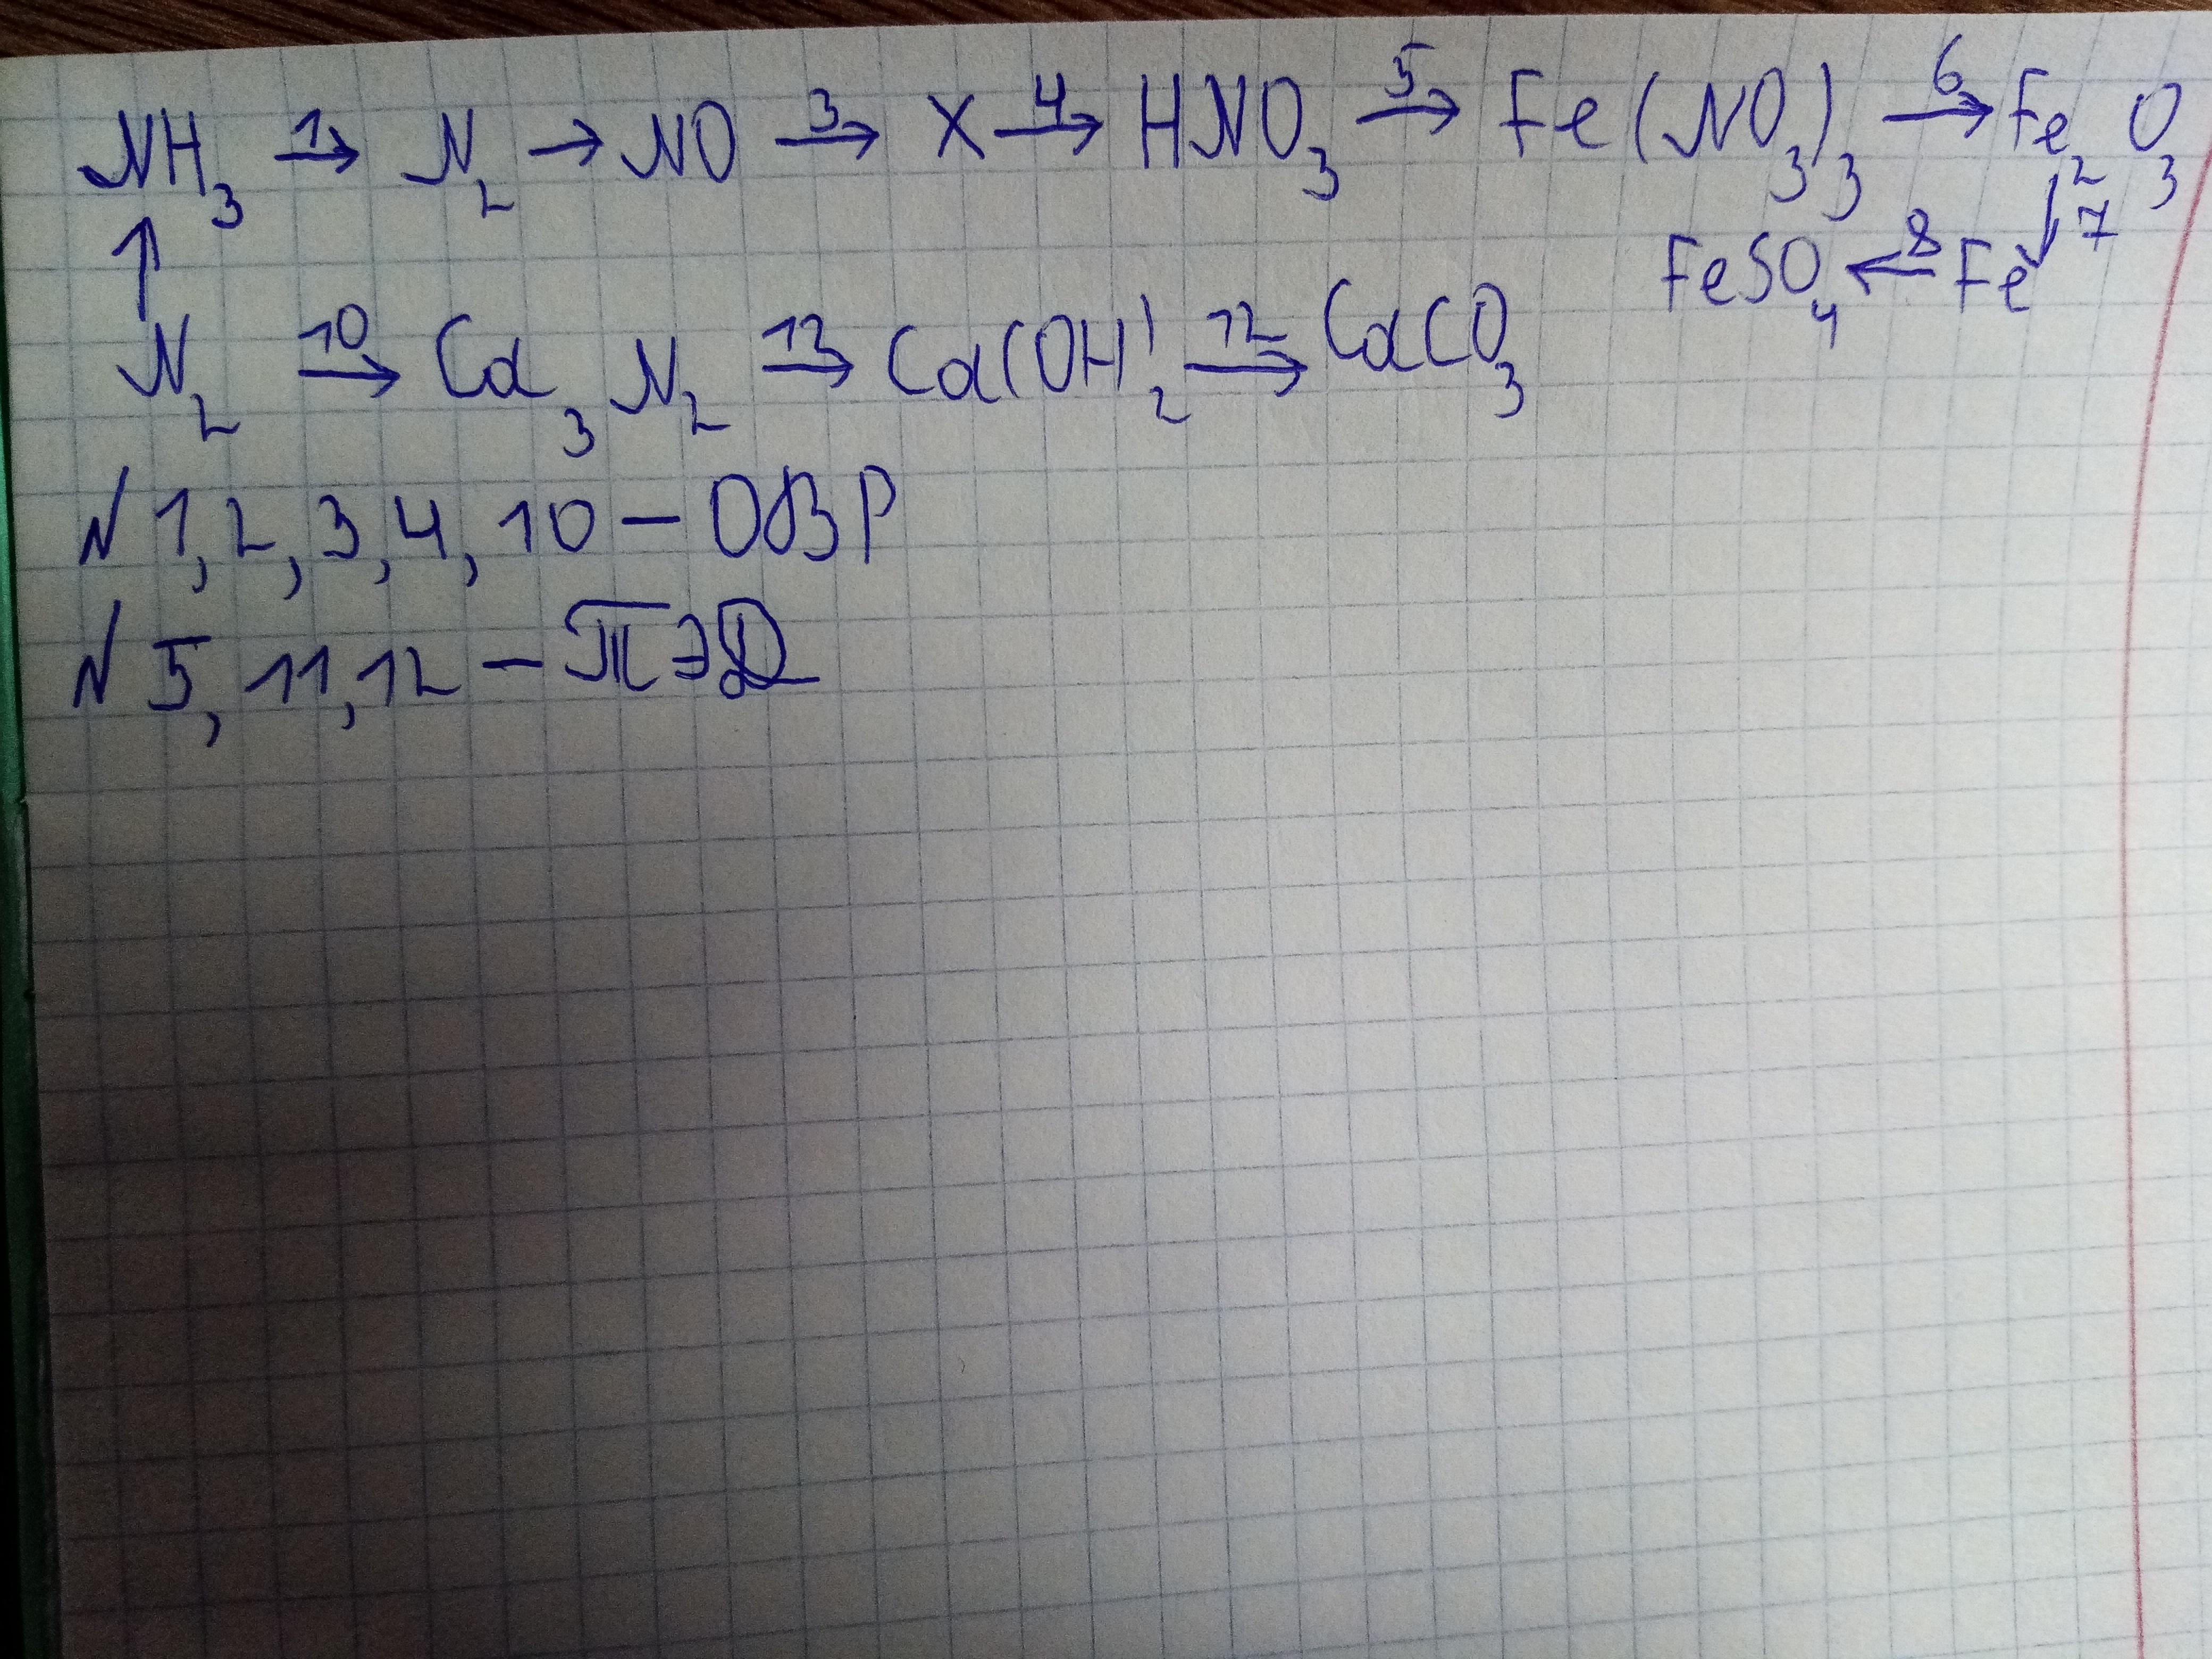 NH₃ →1 N₂ → NO →3 X →4 HNO₃ →5 Fe(NO₃)₃ →6 Fe₂O₃
↑ FeSO₄ ←8 Fe ↓7
N₂ →10 Ca₃N₂ →13 Ca(OH)₂ →12 CaCO₃
N 1, 2, 3, 4, 10 – ОВР
N 5, 11, 12 –